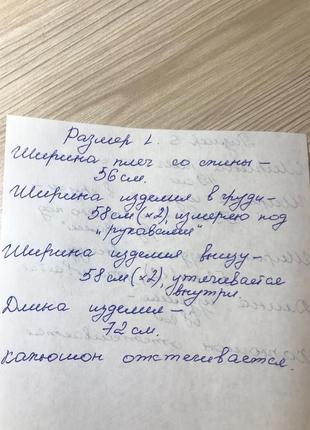 Размер L.
Ширина плеч со спины –
56 см.
Ширина изделия в груди –
58 см (×2), измеряю под
„рукавами"
Ширина изделия внизу –
58 см (×2), утягивается
внутри
Длина изделия –
72 см.
Капюшон отстегивается.